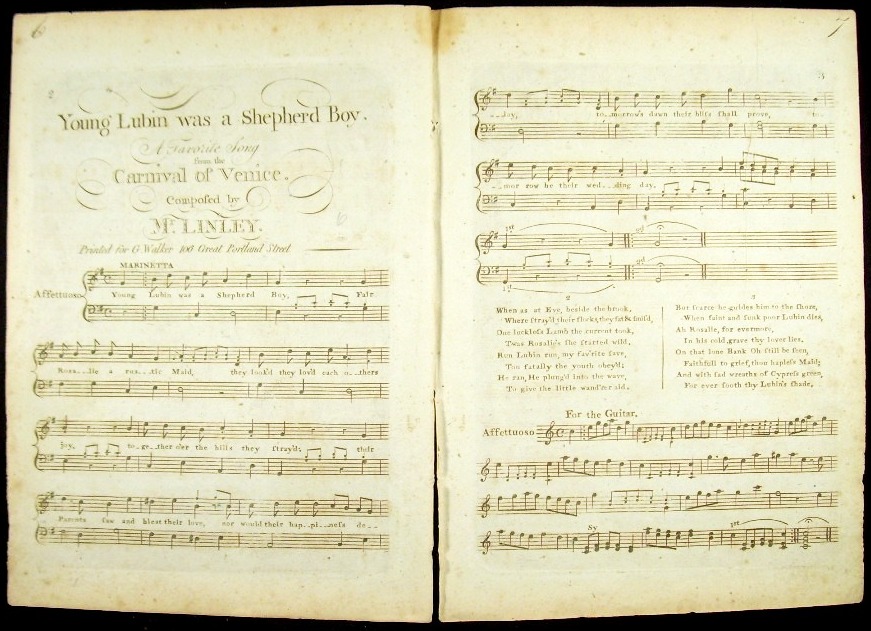 6
2
Young Lubin was a Shepherd Boy.
A Favorite Song
from the
Carnival of Venice.
Composed by
Mr. LINLEY.
Printed for G Walker 106 Great Portland Street
MARINETTA
Affettuoso
Young Lubin was a Shepherd Boy, Fair
Rosa...lie a rus...tic Maid, they look'd they lov'd each o..thers
joy, to-ge..ther o'er the hills they stray'd; their
Parents saw and blest their love, nor would their hap..pi..ness de--
7
3
--lay, to..morrow's dawn their bliss shall prove, to-
-mor row be their wed...ding day.
1st 2d
1st
2
When as at Eve, beside the brook,
Where stray'd their flocks, they sat & smil'd,
One luckless Lamb the current took,
Twas Rosalie's she started wild,
Run Lubin run, my fav'rite save,
Too fatally the youth obey'd;
He ran, He plung'd into the wave,
To give the little wand'rer aid.
3
But scarce he guides him to the shore,
When faint and sunk poor Lubin dies,
Ah Rosalie, for evermore,
In his cold grave thy lover lies,
On that lone Bank Oh still be seen,
Faithfull to grief, thou hapless Maid;
And with sad wreaths of Cypress green,
For ever sooth thy Lubin's shade,
For the Guitar.
Affettuoso
Sy
1st